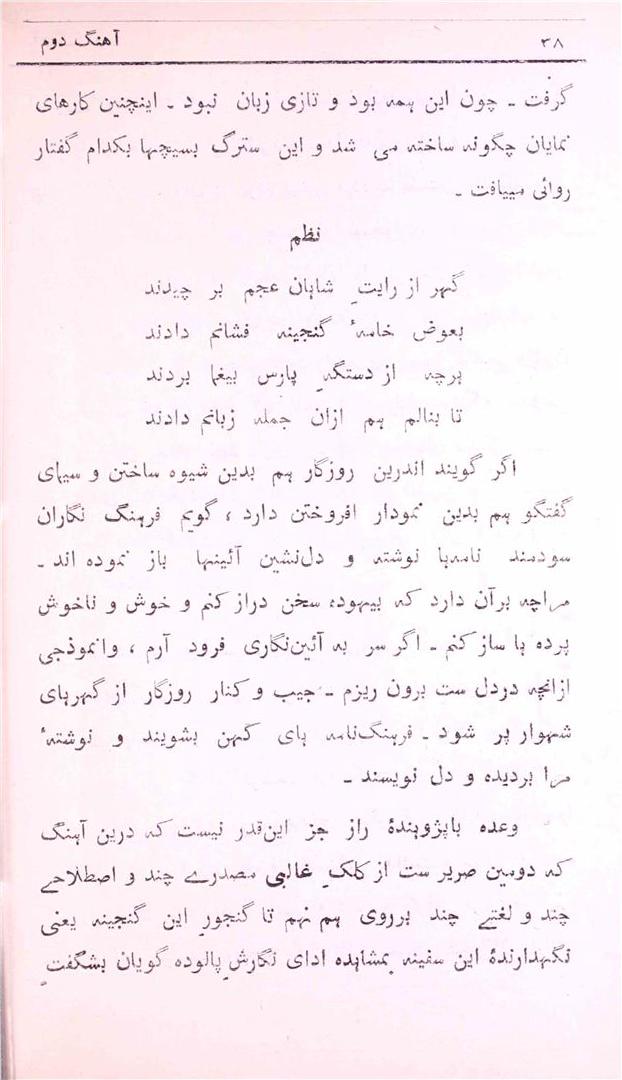 ۳۸ آهنگ دوم
گرفت ـ چون این همه بود و تازی زبان نبود ـ اینچنین کارهای
نمایان چگونه ساخته می شد و این سترگ بسیچها بکدام گفتار
روائی مییافت ـ
نظم
گہر از رایتِ شاہان عجم بر چیدند
بعوض خامۂ گنجینہ فشانم دادند
ہرچہ از دستگہِ پارس بیغما بردند
تا بنالم ہم ازان جملہ زبانم دادند
اگر گویند اندرین روزگار ہم بدین شیوہ ساختن و سیمای
گفتگو ہم بدین نمودار افروختن دارد ، گویم فرہنگ نگاران
سودمند نامہ‌ہا نوشتہ و دل‌نشین آئینہا باز نمودہ اند ـ
مراچہ برآن دارد کہ بیہودہ سخن دراز کنم و خوش و ناخوش
پردہ ہا ساز کنم ـ اگر سر بہ آئین‌نگاری فرود آرم ، وانموذجی
ازانچہ دردل ست برون ریزم ـ جیب و کنار روزگار از گہرہای
شہوار پر شود ـ فرہنگ‌نامہ ہای کہن بشویند و نوشتۂ
مرا بردیدہ و دل نویسند ـ
وعدہ باپژوہندۂ راز جز این‌قدر نیست کہ درین آہنگ
کہ دومین صریر ست از کلکِ غالبی مصدرے چند و اصطلاحے
چند و لغتے چند برروی ہم نہم تا گنجورِ این گنجینہ یعنی
نگہدارندۂ این سفینہ بمشاہدہ ادای نگارشِ پالودہ گویان بشگفتِ